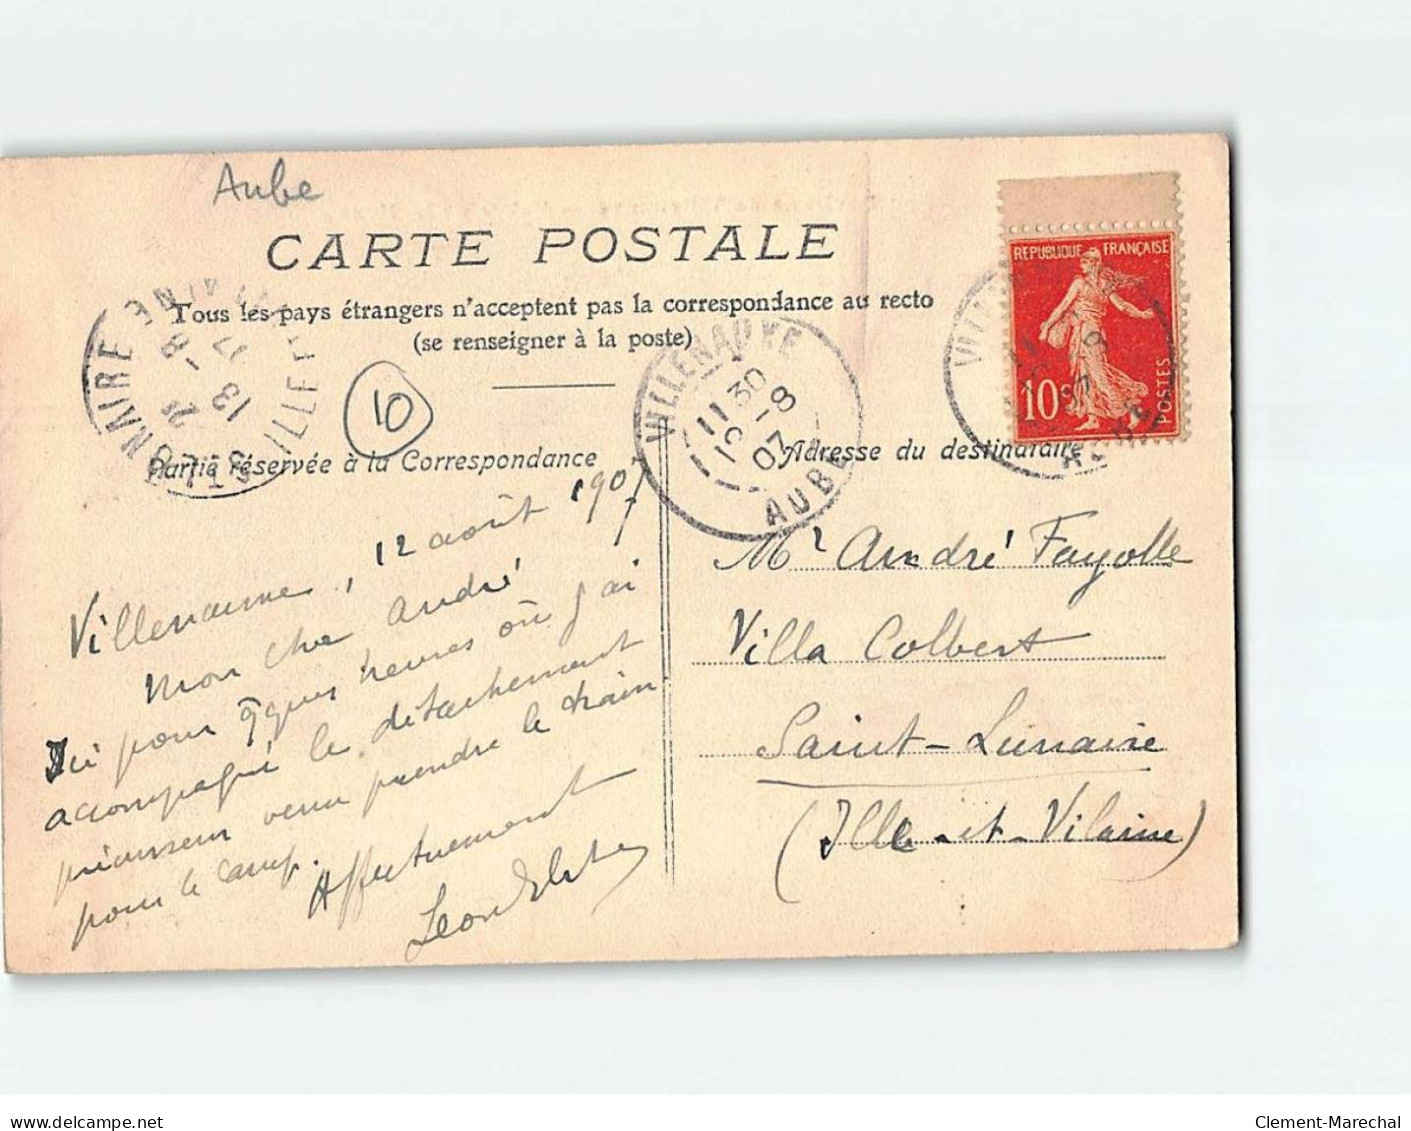 Aube
CARTE POSTALE
Tous les pays étrangers n'acceptent pas la correspondance au recto
(se renseigner à la poste)
REPUBLIQUE FRANÇAISE
10c
POSTES
10
VILLENAUXE
11 30
12 - 8
07
AUBE
Partie réservée à la Correspondance
Adresse du destinataire
Villenauxe, 12 août 1907
Mon cher André
Ici pour qques heures où j'ai
accompagné le détachement
précurseur venu prendre le train
pour le camp.
Affectueusement
Léon
Mr André Fayolle
Villa Colbert
Saint-Lunaire
(Ille-et-Vilaine)
delcampe.net
Clement-Marechal